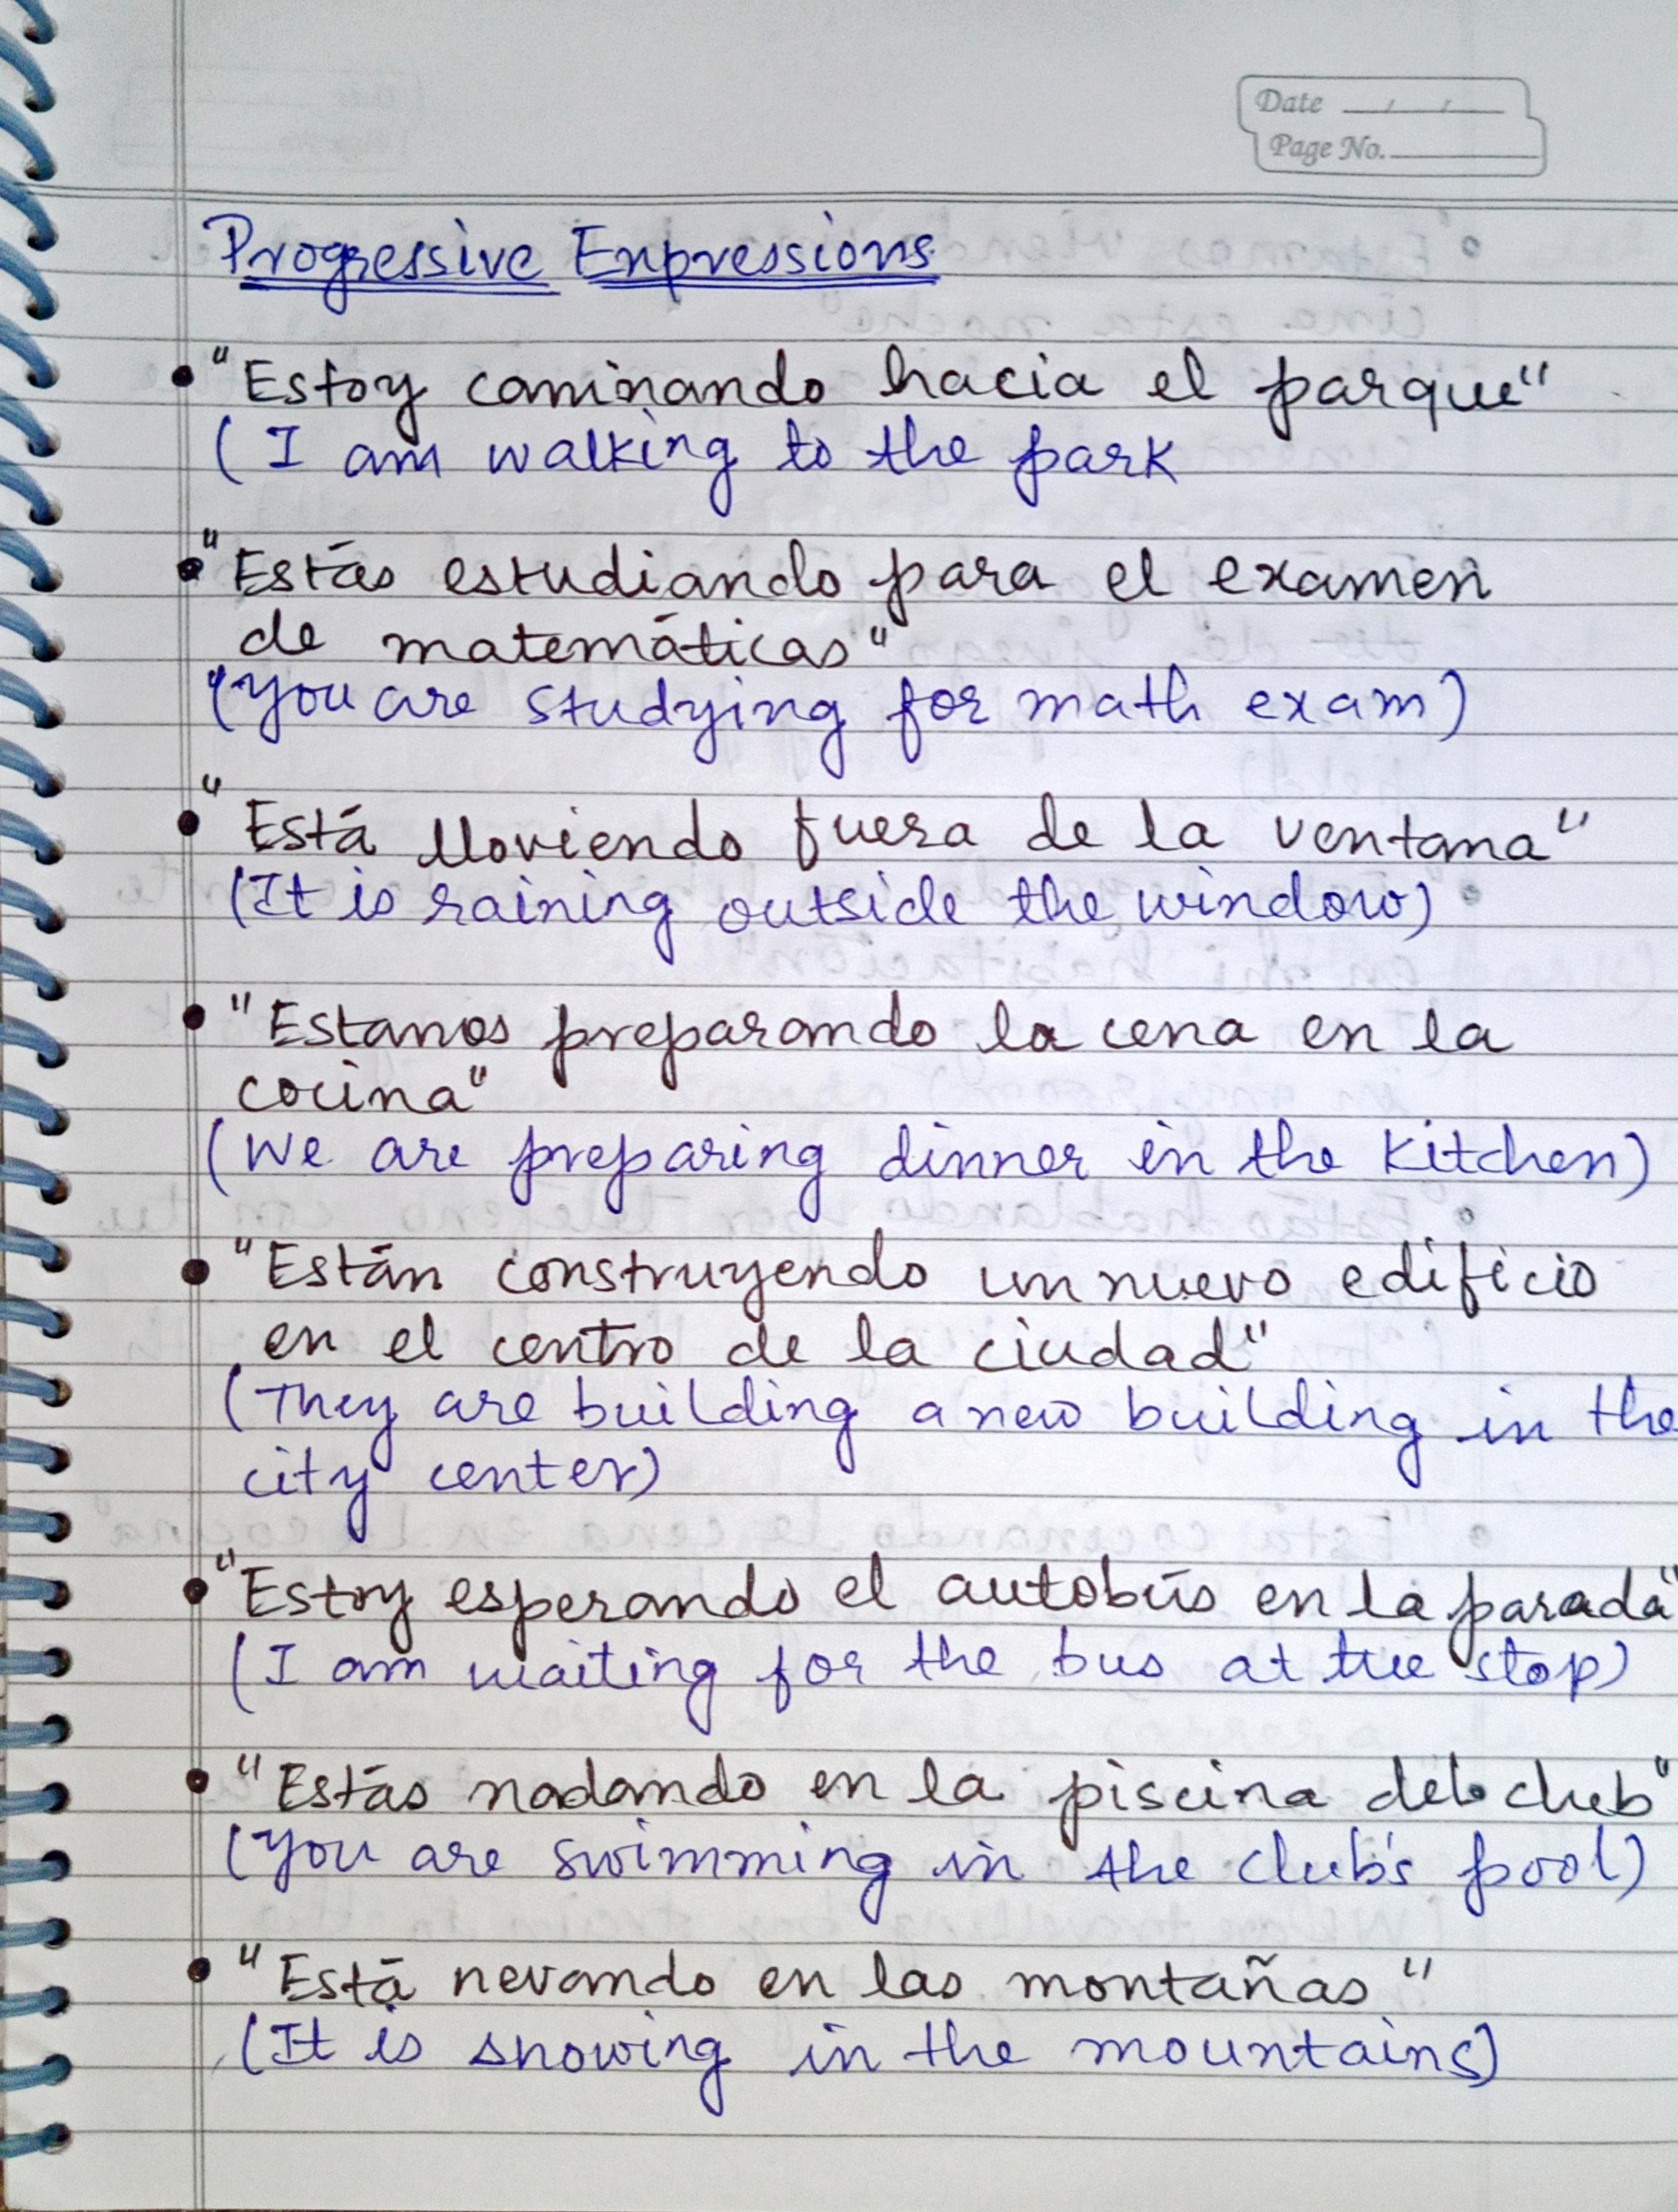 Date / /
Page No.
Progressive Expressions
• "Estoy caminando hacia el parque"
(I am walking to the park
• "Estás estudiando para el examen
de matemáticas"
(you are studying for math exam)
• "Está lloviendo fuera de la ventana"
(It is raining outside the window)
• "Estanos preparando la cena en la
cocina"
(We are preparing dinner in the Kitchen)
• "Están construyendo un nuevo edificio
en el centro de la ciudad"
(They are building a new building in the
city center)
• "Estoy esperando el autobús en la parada"
(I am waiting for the bus at the stop)
• "Estás nadando en la piscina del club"
(you are swimming in the club's pool)
• "Está nevando en las montañas"
(It is snowing in the mountains)